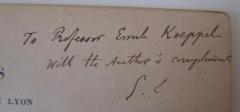 To Professor Emil Koeppel
With the Author's compliments
S. L
S
LYON